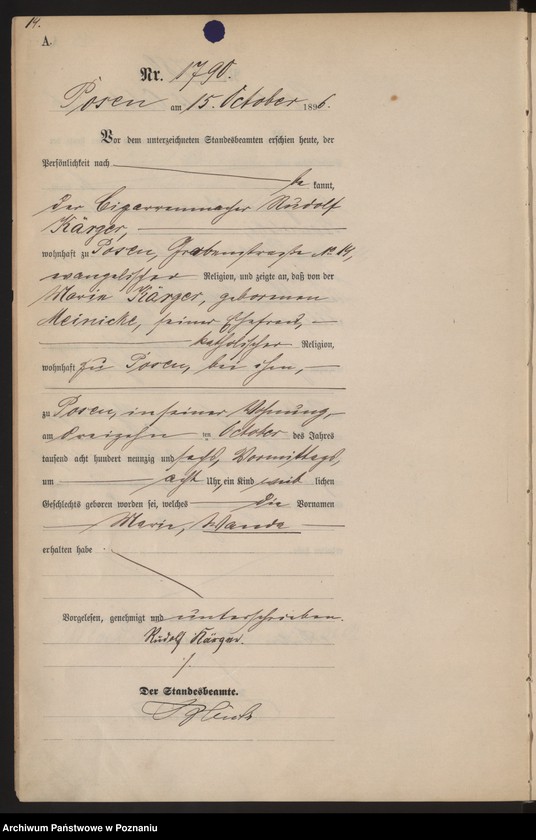 14.
A.
Nr. 1790.
Posen am 15. October 1896.
Vor dem unterzeichneten Standesbeamten erschien heute, der
Persönlichkeit nach
be kannt,
der Cigarrenmacher Rudolf
Kärger,
wohnhaft zu Posen, Grabenstraße No 14,
evangelischer Religion, und zeigte an, daß von der
Marie Kärger, geborenen
Meinicke, seiner Ehefrau,
katholischer Religion,
wohnhaft zu Posen, bei ihm,
zu Posen, in seiner Wohnung,
am dreizehn ten October des Jahres
tausend acht hundert neunzig und sechs, Vormittags,
um acht Uhr, ein Kind weib lichen
Geschlechts geboren worden sei, welches die Vornamen
Marie, Wanda
erhalten habe
Vorgelesen, genehmigt und unterschrieben.
Rudolf Kärger.
Der Standesbeamte.
Archiwum Państwowe w Poznaniu